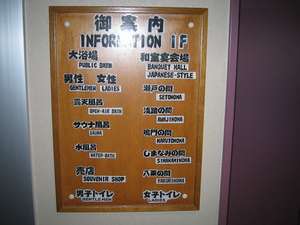 御案内
INFORMATION 1F
大浴場
PUBLIC BATH
男性 女性
GENTLEMEN LADIES
露天風呂
OPEN-AIR BATH
サウナ風呂
SAUNA
水風呂
WATER BATH
売店
SOUVENIR SHOP
男子トイレ
GENTLEMEN
和室宴会場
BANQUET HALL
JAPANESE-STYLE
瀬戸の間
SETONOMA
淡路の間
AWAJINOMA
鳴門の間
NARUTONOMA
しまなみの間
SIMANAMINOMA
八栗の間
YAKURINOMA
女子トイレ
LADIES